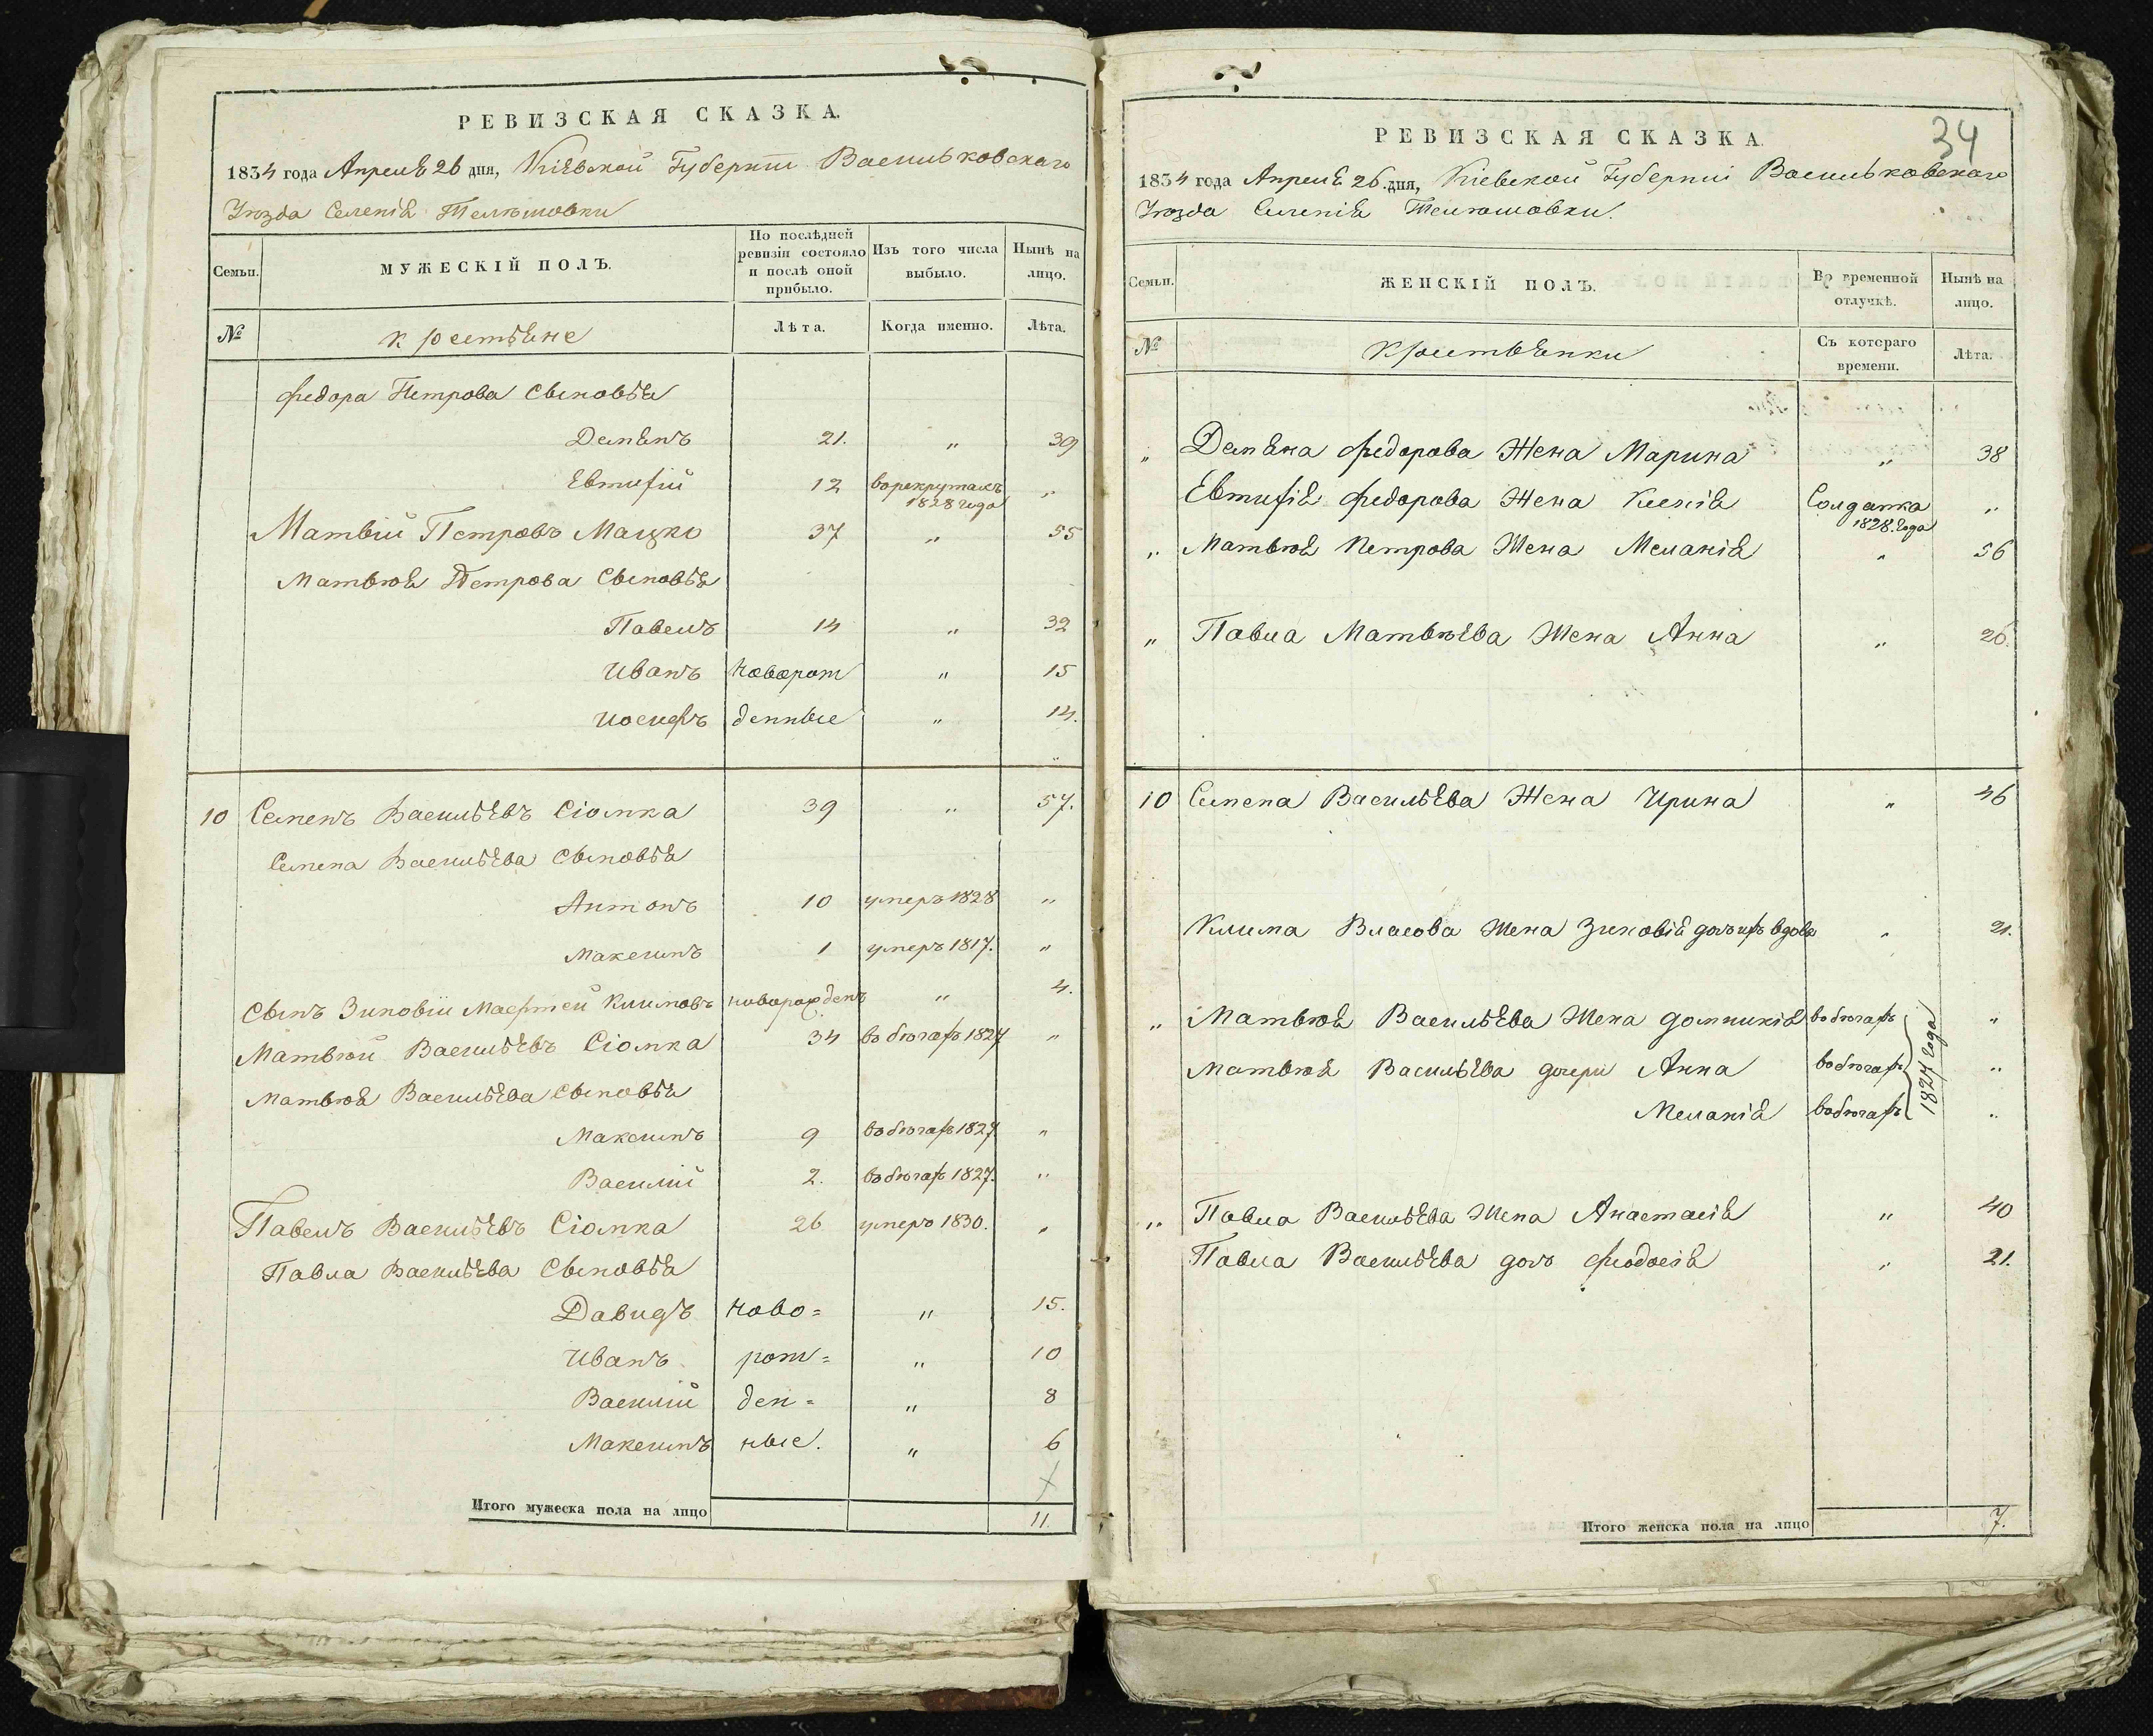 РЕВИЗСКАЯ СКАЗКА.
1834 года Апреля 26 дня, Кіевской Губерніи Васильковскаго
Уѣзда Селенія Телѣшовки
Семьи.
МУЖЕСКІЙ ПОЛЪ.
По послѣдней ревизіи состояло и послѣ оной прибыло.
Изъ того числа выбыло.
Нынѣ на лицо.
№
крестьяне
Лѣта.
Когда именно.
Лѣта.
Федора Петрова Сыновья
Демянъ 21. " 39
Евтифій 12 в рекрутахъ 1828 года "
Матвій Петровъ Мацко 37 " 55
Матвѣя Петрова Сыновья
Павелъ 14 " 32
Иванъ новорож " 15
Иосифъ денные " 14.
10 Семенъ Васильевъ Сіомка 39 " 57.
Семена Васильева Сыновья
Антонъ 10 умеръ 1828 "
Максимъ 1 умеръ 1817. "
Сынъ Зиновіи Маефтей Климовъ новорожденъ " 4.
Матвѣй Васильевъ Сіомка 34 в бѣгахъ 1827 "
Матвѣя Васильева Сыновья
Максимъ 9 в бѣгахъ 1827 "
Василій 2. в бѣгахъ 1827. "
Павелъ Васильевъ Сіомка 26 умеръ 1830. "
Павла Васильева Сыновья
Давидъ ново= " 15.
Иванъ рож= " 10
Василій ден= " 8
Максимъ ные. " 6
Итого мужеска пола на лицо 11.
34
РЕВИЗСКАЯ СКАЗКА.
1834 года Апреля 26. дня, Кіевской Губерніи Васильковскаго
Уѣзда Селенія Телѣшовки.
Семьи.
ЖЕНСКІЙ ПОЛЪ.
Во временной отлучкѣ.
Нынѣ на лицо.
№
Крестьянки
Съ котораго времени.
Лѣта.
" Демяна Федорова Жена Марина " 38
Евтифія Федорова Жена Ксенія Солдатка 1828. года "
" Матвѣя Петрова Жена Меланія " 56
" Павла Матвѣева Жена Анна " 26.
10 Семена Васильева Жена Ирина " 46
Клима Власова Жена Зиновія вдова " 21.
" Матвѣя Васильева Жена Домникія в бѣгахъ "
Матвѣя Васильева дочери Анна в бѣгахъ "
Меланія в бѣгахъ "
1827 года
" Павла Васильева Жена Анастасія " 40
Павла Васильева дочь Феодосія " 21.
Итого женска пола на лицо 7.